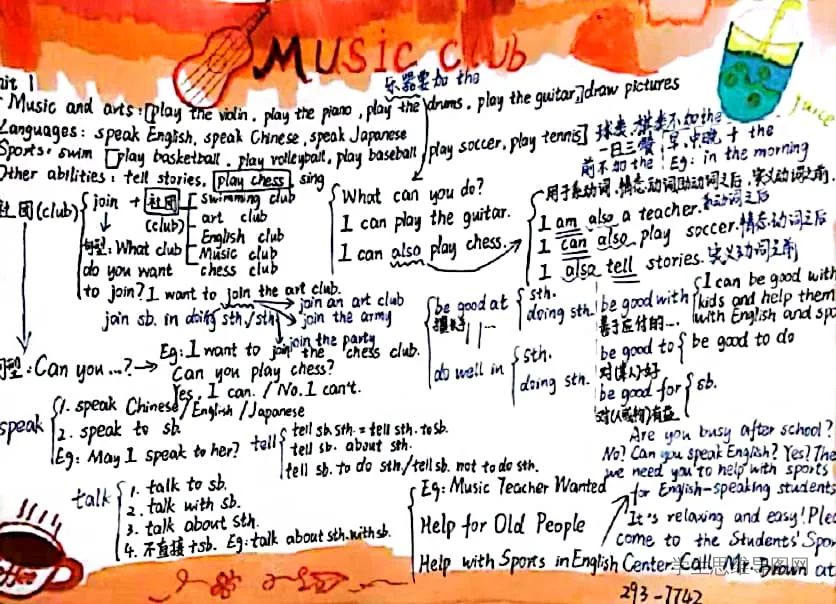 MUSIC club
乐器要加 the
Unit 1
Music and arts: [play the violin, play the piano, play the drums, play the guitar,] draw pictures
juice
Languages: speak English, speak Chinese, speak Japanese
Sports: swim [play basketball, play volleyball, play baseball, play soccer, play tennis] 球类、棋类不加 the
一日三餐, 早、中、晚 + the
前不加 the Eg: in the morning
Other abilities: tell stories, play chess, sing
社团(club)
join + 社团
(club)
swimming club
art club
English club
Music club
chess club
句型: What club
do you want
to join? I want to join the art club.
join an art club
join the army
join the party
join sb. in doing sth./sth.
What can you do?
I can play the guitar.
I can also play chess.
用于系动词, 情态动词助动词之后, 实义动词之前.
I am also a teacher. 系动词之后
I can also play soccer. 情态动词之后
I also tell stories. 实义动词之前
be good at
擅长于
sth.
doing sth.
do well in
sth.
doing sth.
be good with
善于应付的...
I can be good with
kids and help them
with English and spo
be good to
对(某人)好
be good to do
be good for
sb.
对(人或物)有益
句型: Can you ...? → Eg: I want to join the chess club.
Can you play chess?
Yes, I can. / No. I can't.
speak
1. speak Chinese/English/Japanese
2. speak to sb.
Eg: May I speak to her?
tell
tell sb. sth. = tell sth. to sb.
tell sb. about sth.
tell sb. to do sth./tell sb. not to do sth.
talk
1. talk to sb.
2. talk with sb.
3. talk about sth.
4. 不直接+sb. Eg: talk about sth. with sb.
Eg: Music Teacher Wanted
Help for Old People
Help with Sports in English
Are you busy after school?
No? Can you speak English? Yes? The
we need you to help with sports
for English-speaking students
It's relaxing and easy! Plea
come to the Students' Spor
Center. Call Mr. Brown at
293-7742
coffee
学生思维导图网